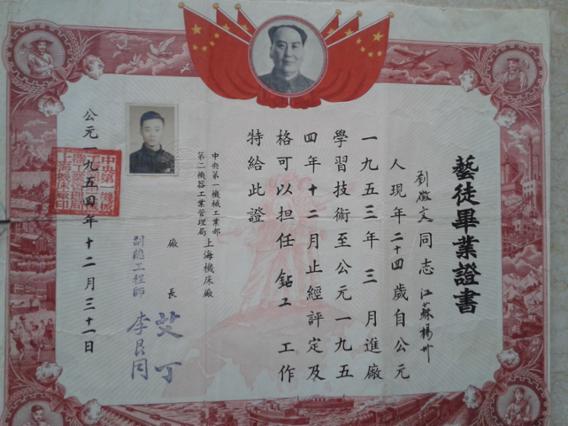 藝徒畢業證書
劉敬文同志江蘇揚州
人現年二十四歲自公元
一九五三年三月進廠
學習技術至公元一九五
四年十二月止經評定及
格可以担任鉗工工作
特給此證
中央第一機械工業部
第二機器工業管理局
上海機床廠
廠長 艾丁
副總工程師
公元一九五四年十二月三十一日